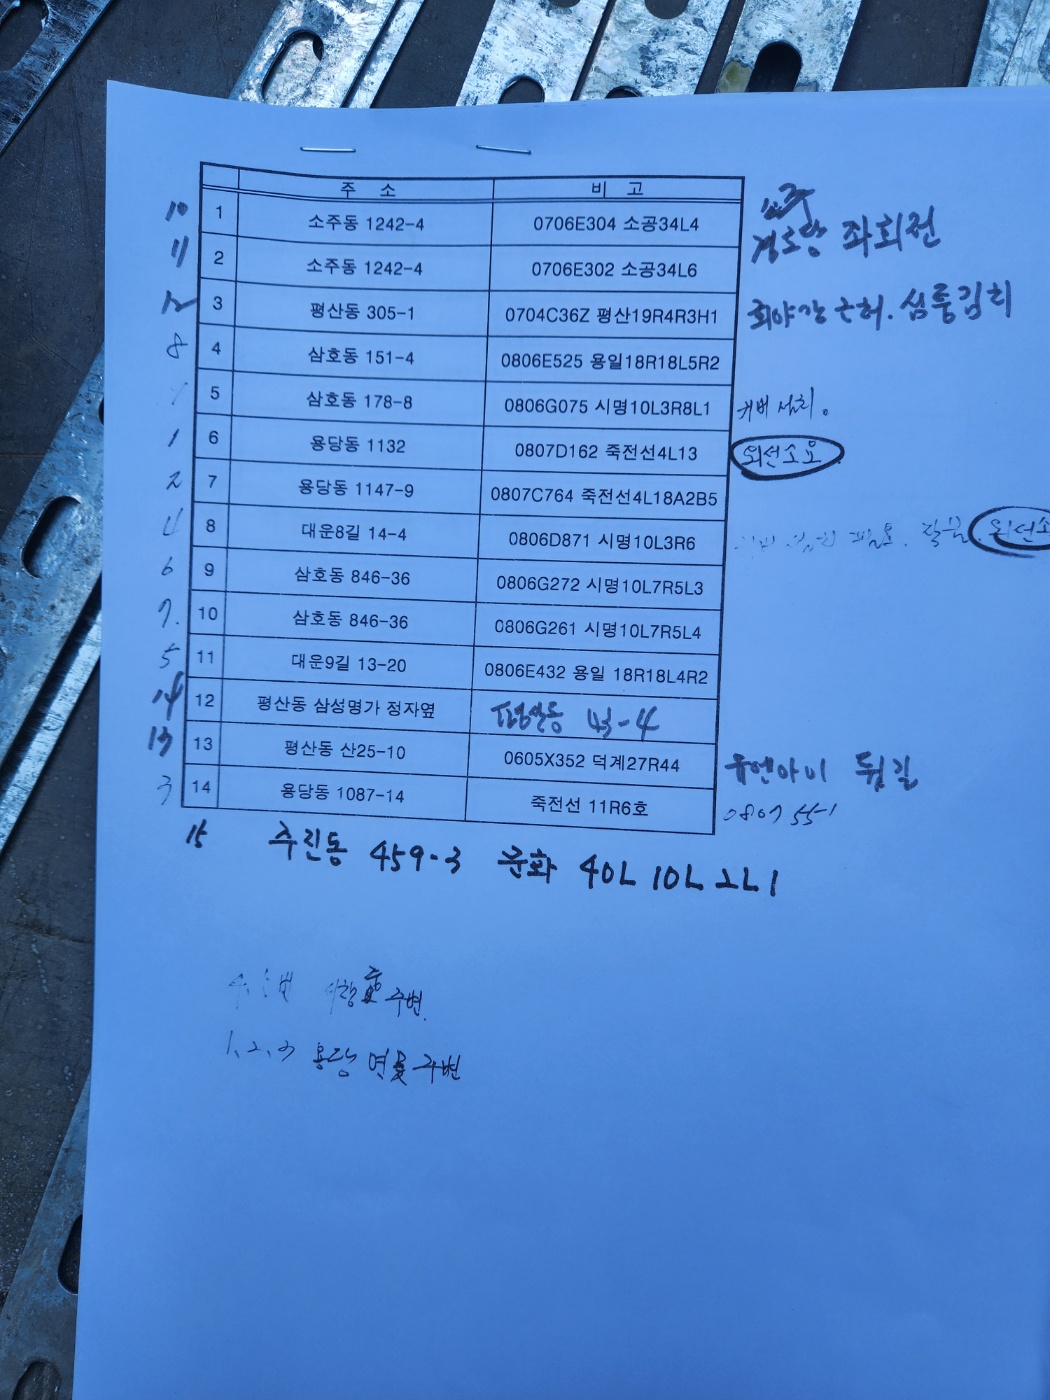 주 소 비 고
10 1 소주동 1242-4 0706E304 소공34L4 좌회전
11 2 소주동 1242-4 0706E302 소공34L6
12 3 평산동 305-1 0704C36Z 평산19R4R3H1 회야강 근처. 심통김치
8 4 삼호동 151-4 0806E525 용일18R18L5R2
5 삼호동 178-8 0806G075 시명10L3R8L1 커버 설치.
1 6 용당동 1132 0807D162 죽전선4L13 외선소요
2 7 용당동 1147-9 0807C764 죽전선4L18A2B5
4 8 대운8길 14-4 0806D871 시명10L3R6 외선소
6 9 삼호동 846-36 0806G272 시명10L7R5L3
7. 10 삼호동 846-36 0806G261 시명10L7R5L4
5 11 대운9길 13-20 0806E432 용일 18R18L4R2
14 12 평산동 삼성명가 정자옆 평산동 43-4
13 13 평산동 산25-10 0605X352 덕계27R44 유앤아이 뒷길
3 14 용당동 1087-14 죽전선 11R6호 0807 55-1
15 주진동 459-3 문화 40L 10L 2L1
주변.
1, 2, 3 용당 연꽃 주변